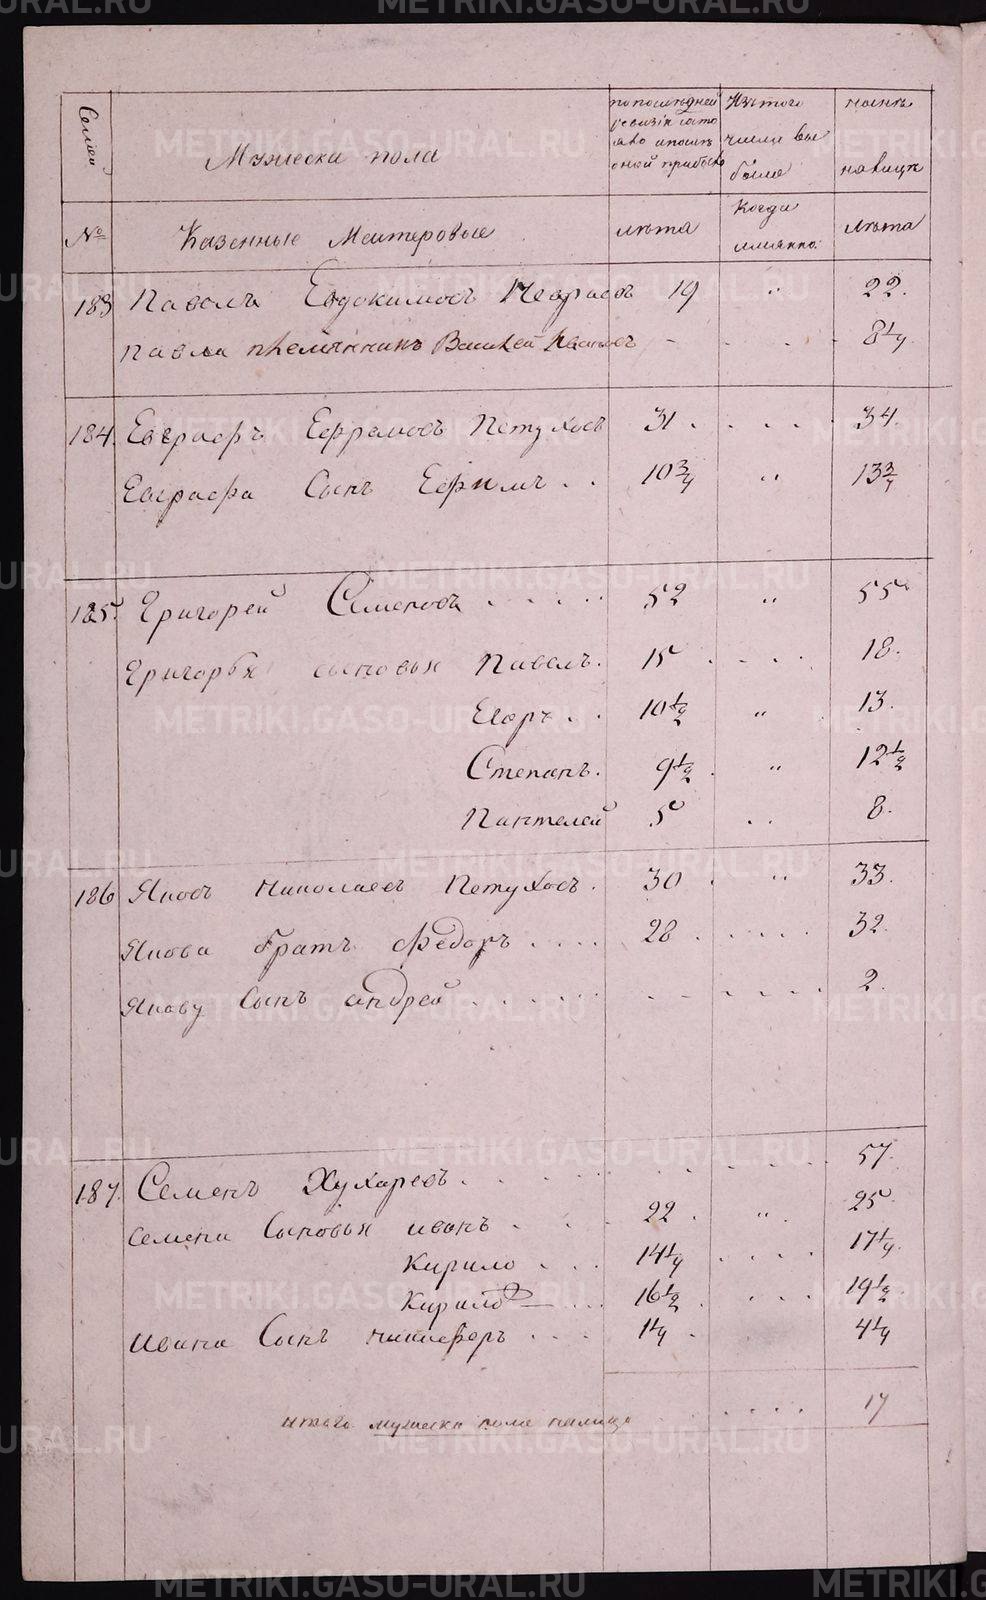 Семьи
Мужеска пола
по последней
ревизiи состо
яло и после
оной прибыло
Изъ того
числа вы
было
ныне
налицо
№
Казенные Мастеровые
лѣта
Когда
имянно
лѣта
183 Павелъ Евдокимовъ 19 " 22.
Павла племянникъ Василей Ивановъ - . . . 8¼.
184. Евграфъ Ефремовъ Петуховъ 31 . . . . . 34.
Евграфа Сынъ Ефимъ . . 10¾ " 13¾
185. Григорей Семеновъ . . . . . 52 " 55
Григорья сыновья Павелъ. 15 . . . . 18.
Егоръ . . 10½ " 13.
Степанъ. 9½ . " 12½
Пантелей 5 . . 8.
186 Яковъ Николаевъ Петуховъ. 30 . " 33.
Якова братъ Федоръ . . . . 28 . . . . . 32.
Якову Сынъ андрей . . . . . - - . . . . 2.
187. Семенъ Хухаревъ . . . . . . . . . 57.
Семена Сыновья иванъ . . . 22 . " . 25
Кирило . . . 14¼ . . . . 17¼.
Кирило . . . . 16½ . . . . 19½
Ивана Сынъ никифоръ . . . . 1¼ . 4¼
итого мужеска пола налицо . . . . 17
METRIKI.GASO-URAL.RU